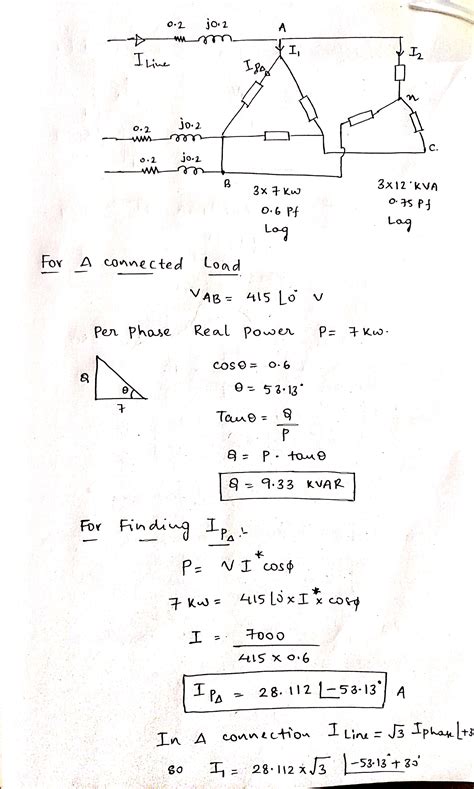 0.2 j0.2 A
I Line I1 I2
IPΔ
n
0.2 j0.2
0.2 j0.2 C.
B
3x7 kw 3x12 KVA
0.6 Pf 0.75 Pf
Lag Lag
For Δ connected Load
VAB = 415 ∠0° V
Per Phase Real Power P= 7 Kw.
Cosθ = 0.6
θ = 53.13°
Q θ 7
Tanθ = Q/P
Q = P. tanθ
Q = 9.33 KVAR
For Finding IPΔ :-
P= VI* cosϕ
7 Kw = 415 ∠0° x I* x cosϕ
I = 7000 / 415 x 0.6
IPΔ = 28.112 ∠-53.13° A
In Δ connection I Line = √3 I phase ∠+3
So I1 = 28.112 x √3 ∠-53.13° + 30°